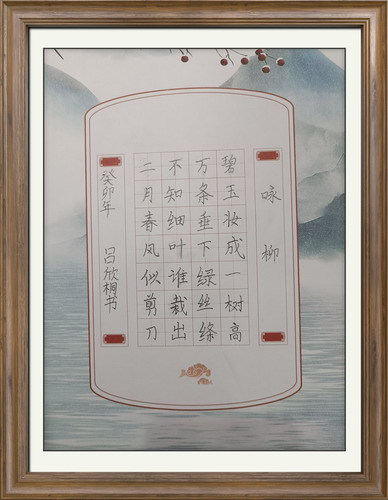 咏柳
碧玉妆成一树高
万条垂下绿丝绦
不知细叶谁裁出
二月春风似剪刀
癸卯年 吕欣桐书